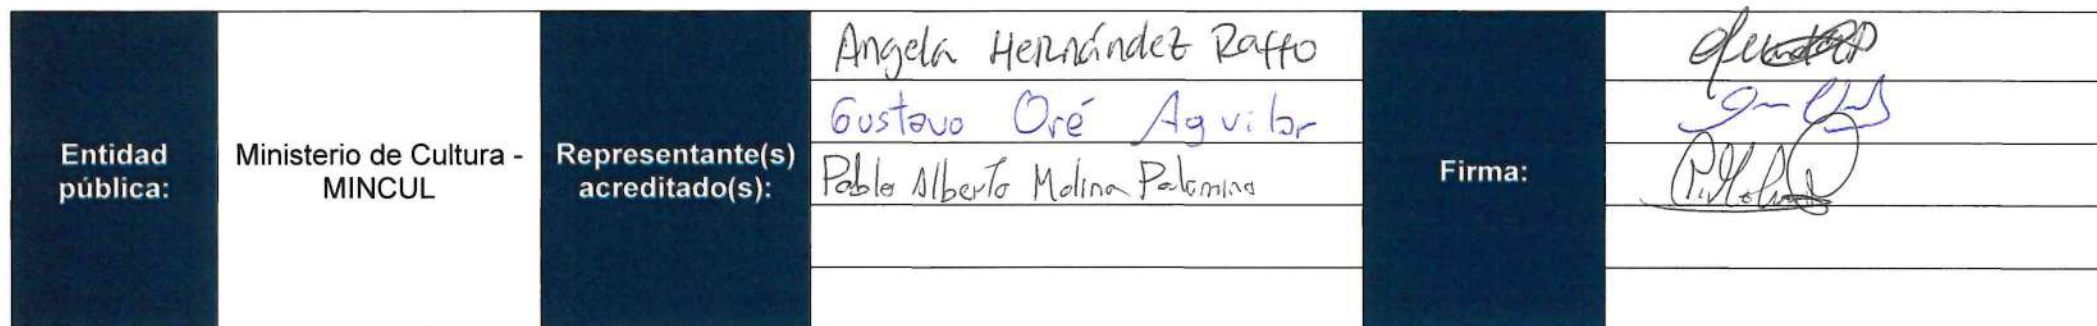 Entidad pública:
Ministerio de Cultura - MINCUL
Representante(s) acreditado(s):
Angela Hernández Raffo
Gustavo Oré Aguilar
Pablo Alberto Molina Palomino
Firma: